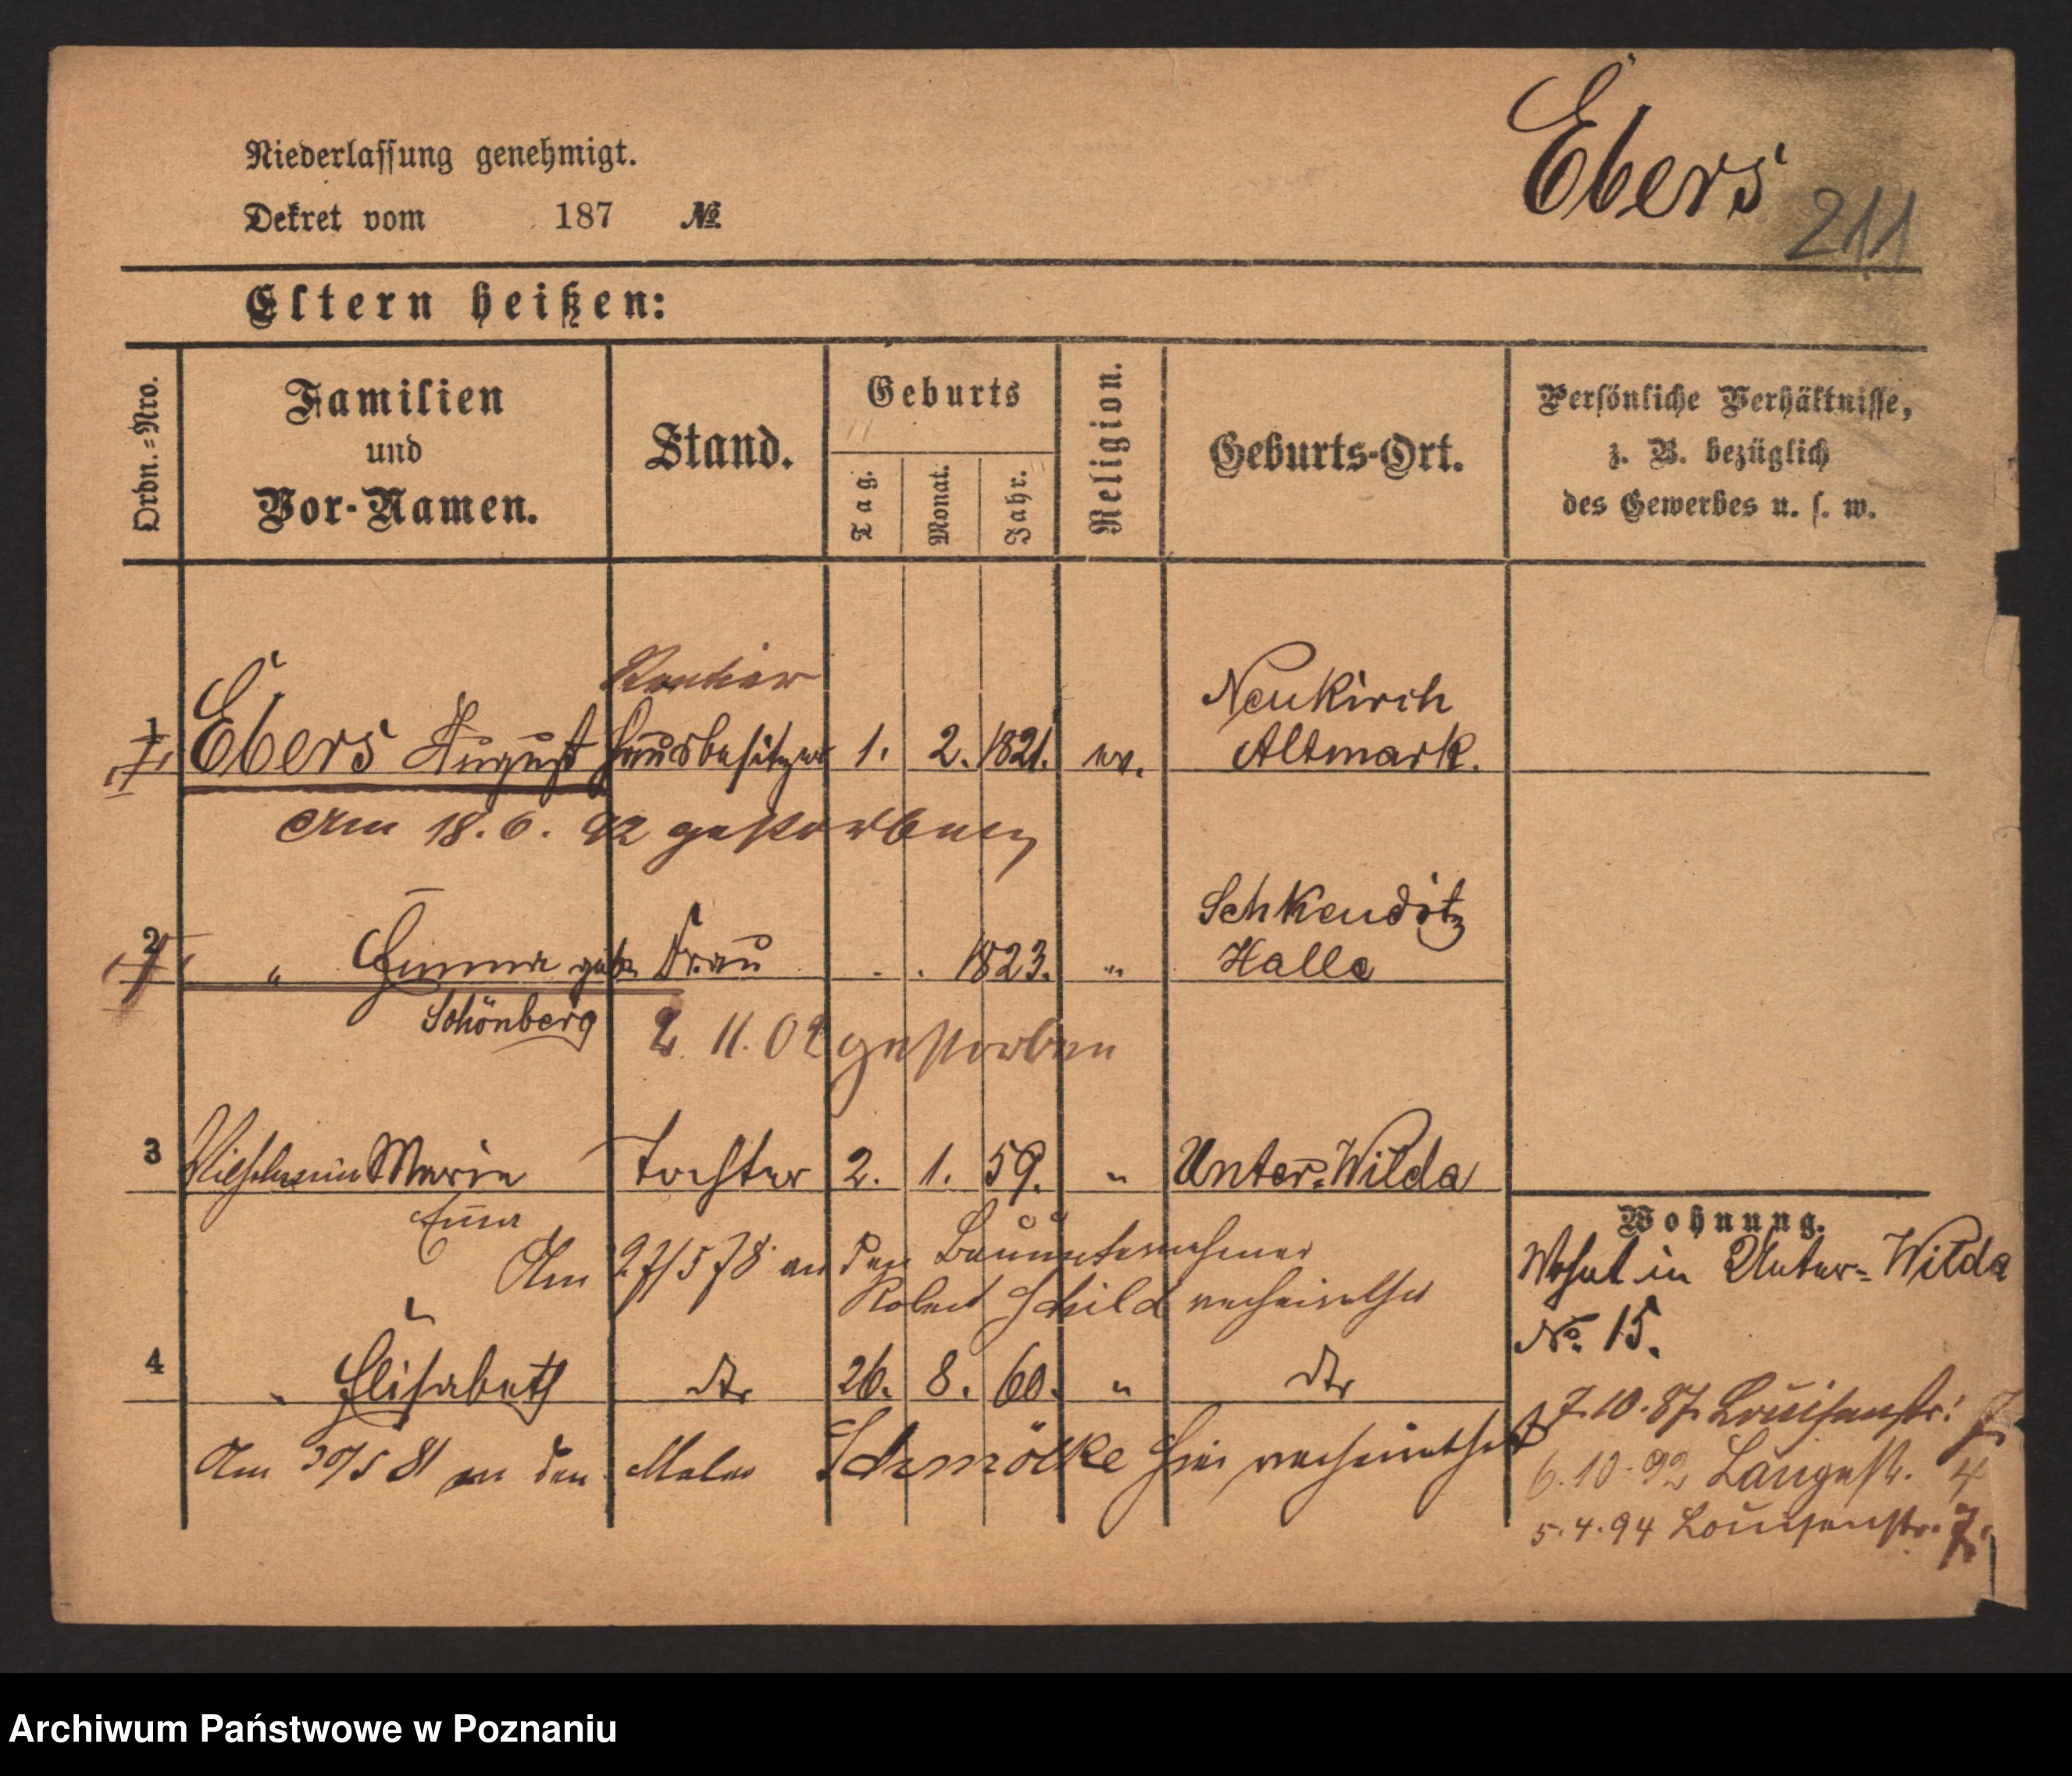 Ebers
211
Niederlassung genehmigt.
Dekret vom 187 №
Eltern heißen:
Ordn.=Nro.
Familien
und
Vor-Namen.
Stand.
Geburts
Tag.
Monat.
Jahr.
Religion.
Geburts-Ort.
Persönliche Verhältnisse,
z. B. bezüglich
des Gewerbes u. s. w.
Rentier
1 Ebers August Hausbesitzer 1. 2. 1821. ev. Neukirch
Altmark.
Am 18. 6. 92 gestorben
2 " Emma geb. Frau . . 1823. " Schkeuditz
Halle
Schönberg
2. 11. 02 gestorben
3 Marie Tochter 2. 1. 59. " Unter=Wilda
Emma
Am 27/5 78 an den Bauunternehmer
Robert Schild verheirathet
4 " Elisabeth dto 26. 8. 60. " dto
Am 30/5 81 an den Maler Schmölke hier verheirathet
Wohnung.
Wohnt in Unter=Wilda
No. 15.
7.10.87. Louisenstr. 7
6.10.92 Langestr. 4
5.4.94 Louisenstr. 7.
Archiwum Państwowe w Poznaniu